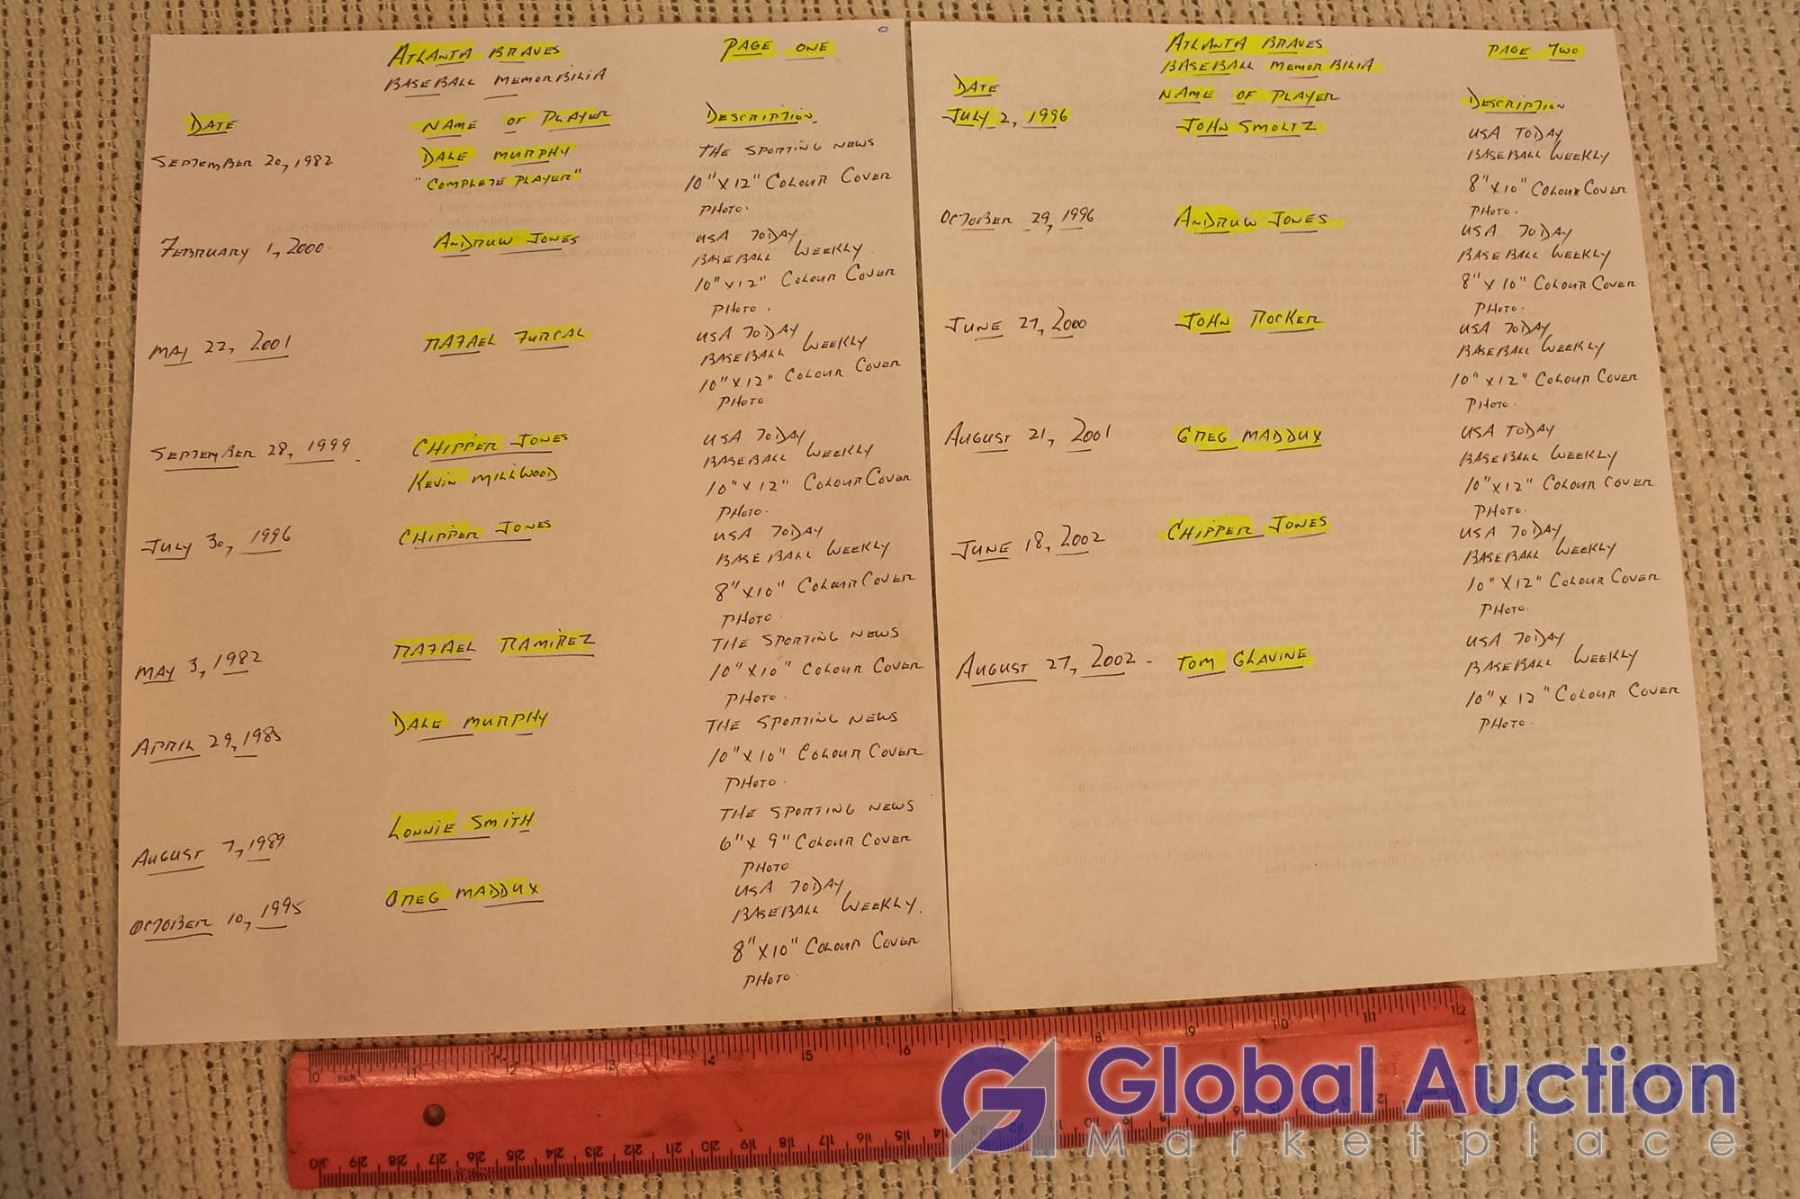 ATLANTA BRAVES PAGE ONE
BASEBALL MEMORBILIA
DATE NAME OF PLAYER DESCRIPTION.
SEPTEMBER 20, 1982 DALE MURPHY THE SPORTING NEWS
"COMPLETE PLAYER" 10" X 12" COLOUR COVER
PHOTO.
FEBRUARY 1, 2000. ANDRUW JONES USA TODAY
BASEBALL WEEKLY.
10" X 12" COLOUR COVER
PHOTO.
MAY 22, 2001 RAFAEL FURCAL USA TODAY
BASEBALL WEEKLY
10" X 12" COLOUR COVER
PHOTO
SEPTEMBER 28, 1999. CHIPPER JONES USA TODAY
KEVIN MILLWOOD BASEBALL WEEKLY
10" X 12" COLOUR COVER
PHOTO.
JULY 30, 1996 CHIPPER JONES USA TODAY
BASEBALL WEEKLY
8" X 10" COLOUR COVER
PHOTO.
MAY 3, 1982 RAFAEL RAMIREZ THE SPORTING NEWS
10" X 10" COLOUR COVER
PHOTO.
APRIL 29, 1985 DALE MURPHY THE SPORTING NEWS
10" X 10" COLOUR COVER
PHOTO.
AUGUST 7, 1989 LONNIE SMITH THE SPORTING NEWS
6" X 9" COLOUR COVER
PHOTO
OCTOBER 10, 1995 GREG MADDUX USA TODAY
BASEBALL WEEKLY.
8" X 10" COLOUR COVER
PHOTO.
ATLANTA BRAVES PAGE TWO
BASEBALL MEMORBILIA
DATE NAME OF PLAYER DESCRIPTION
JULY 2, 1996 JOHN SMOLTZ USA TODAY
BASEBALL WEEKLY
8" X 10" COLOUR COVER
PHOTO.
OCTOBER 29, 1996 ANDRUW JONES USA TODAY
BASEBALL WEEKLY
8" X 10" COLOUR COVER
PHOTO.
JUNE 27, 2000 JOHN ROCKER USA TODAY
BASEBALL WEEKLY
10" X 12" COLOUR COVER
PHOTO.
AUGUST 21, 2001 GREG MADDUX USA TODAY
BASEBALL WEEKLY
10" X 12" COLOUR COVER
PHOTO.
JUNE 18, 2002 CHIPPER JONES USA TODAY
BASEBALL WEEKLY
10" X 12" COLOUR COVER
PHOTO.
AUGUST 27, 2002 - TOM GLAVINE USA TODAY
BASEBALL WEEKLY
10" X 12" COLOUR COVER
PHOTO.
0 1 2 3 4 5 6 7 8 9 10 11 12
30 29 28 27 26 25 24 23 22 21 20 19 18 17 16 15 14
Global Auction
Marketplace